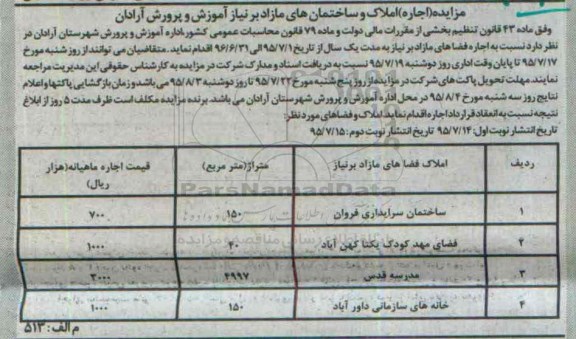 مزایده(اجاره)املاک و ساختمان های مازاد بر نیاز آموزش و پرورش آرادان
وفق ماده ۴۳ قانون تنظیم بخشی از مقررات مالی دولت و ماده ۷۹ قانون محاسبات عمومی کشور،اداره آموزش و پرورش شهرستان آرادان در
نظر دارد نسبت به اجاره فضا های مازاد بر نیاز به مدت یک سال از تاریخ ۹۵/۷/۱ الی ۹۶/۶/۳۱ اقدام نماید. متقاضیان می توانند از روز شنبه مورخ
۹۵/۷/۱۷ تا پایان وقت اداری روز دوشنبه ۹۵/۷/۱۹ نسبت به دریافت اسناد و مدارک شرکت در مزایده به کارشناس حقوقی این مدیریت مراجعه
نمایند. مهلت تحویل پاکت های شرکت در مزایده از روز پنج شنبه مورخ ۹۵/۷/۲۲ تا روز دوشنبه ۹۵/۸/۳ می باشد و زمان بازگشایی پاکتها و اعلام
نتایج روز سه شنبه مورخ ۹۵/۸/۴ در محل اداره آموزش و پرورش شهرستان آرادان می باشد. برنده مزایده مکلف است ظرف مدت ۵ روز از ابلاغ
نتیجه نسبت به انعقاد قرارداد اجاره اقدام نماید.املاک و فضاهای مورد نظر:
تاریخ انتشار نوبت اول: ۹۵/۷/۱۴ تاریخ انتشار نوبت دوم: ۹۵/۷/۱۵
ردیف املاک فضا های مازاد برنیاز متراژ(متر مربع) قیمت اجاره ماهیانه(هزار
ریال)
۱ ساختمان سرایداری فروان ۱۵۰ ۷۰۰
۲ فضای مهد کودک یکتا کهن آباد ۴۰ ۱۰۰۰
۳ مدرسه قدس ۴۹۹۷ ۲۰۰۰
۴ خانه های سازمانی داور آباد ۱۵۰ ۱۰۰۰
م الف: ۵۱۳
ParsNamadData